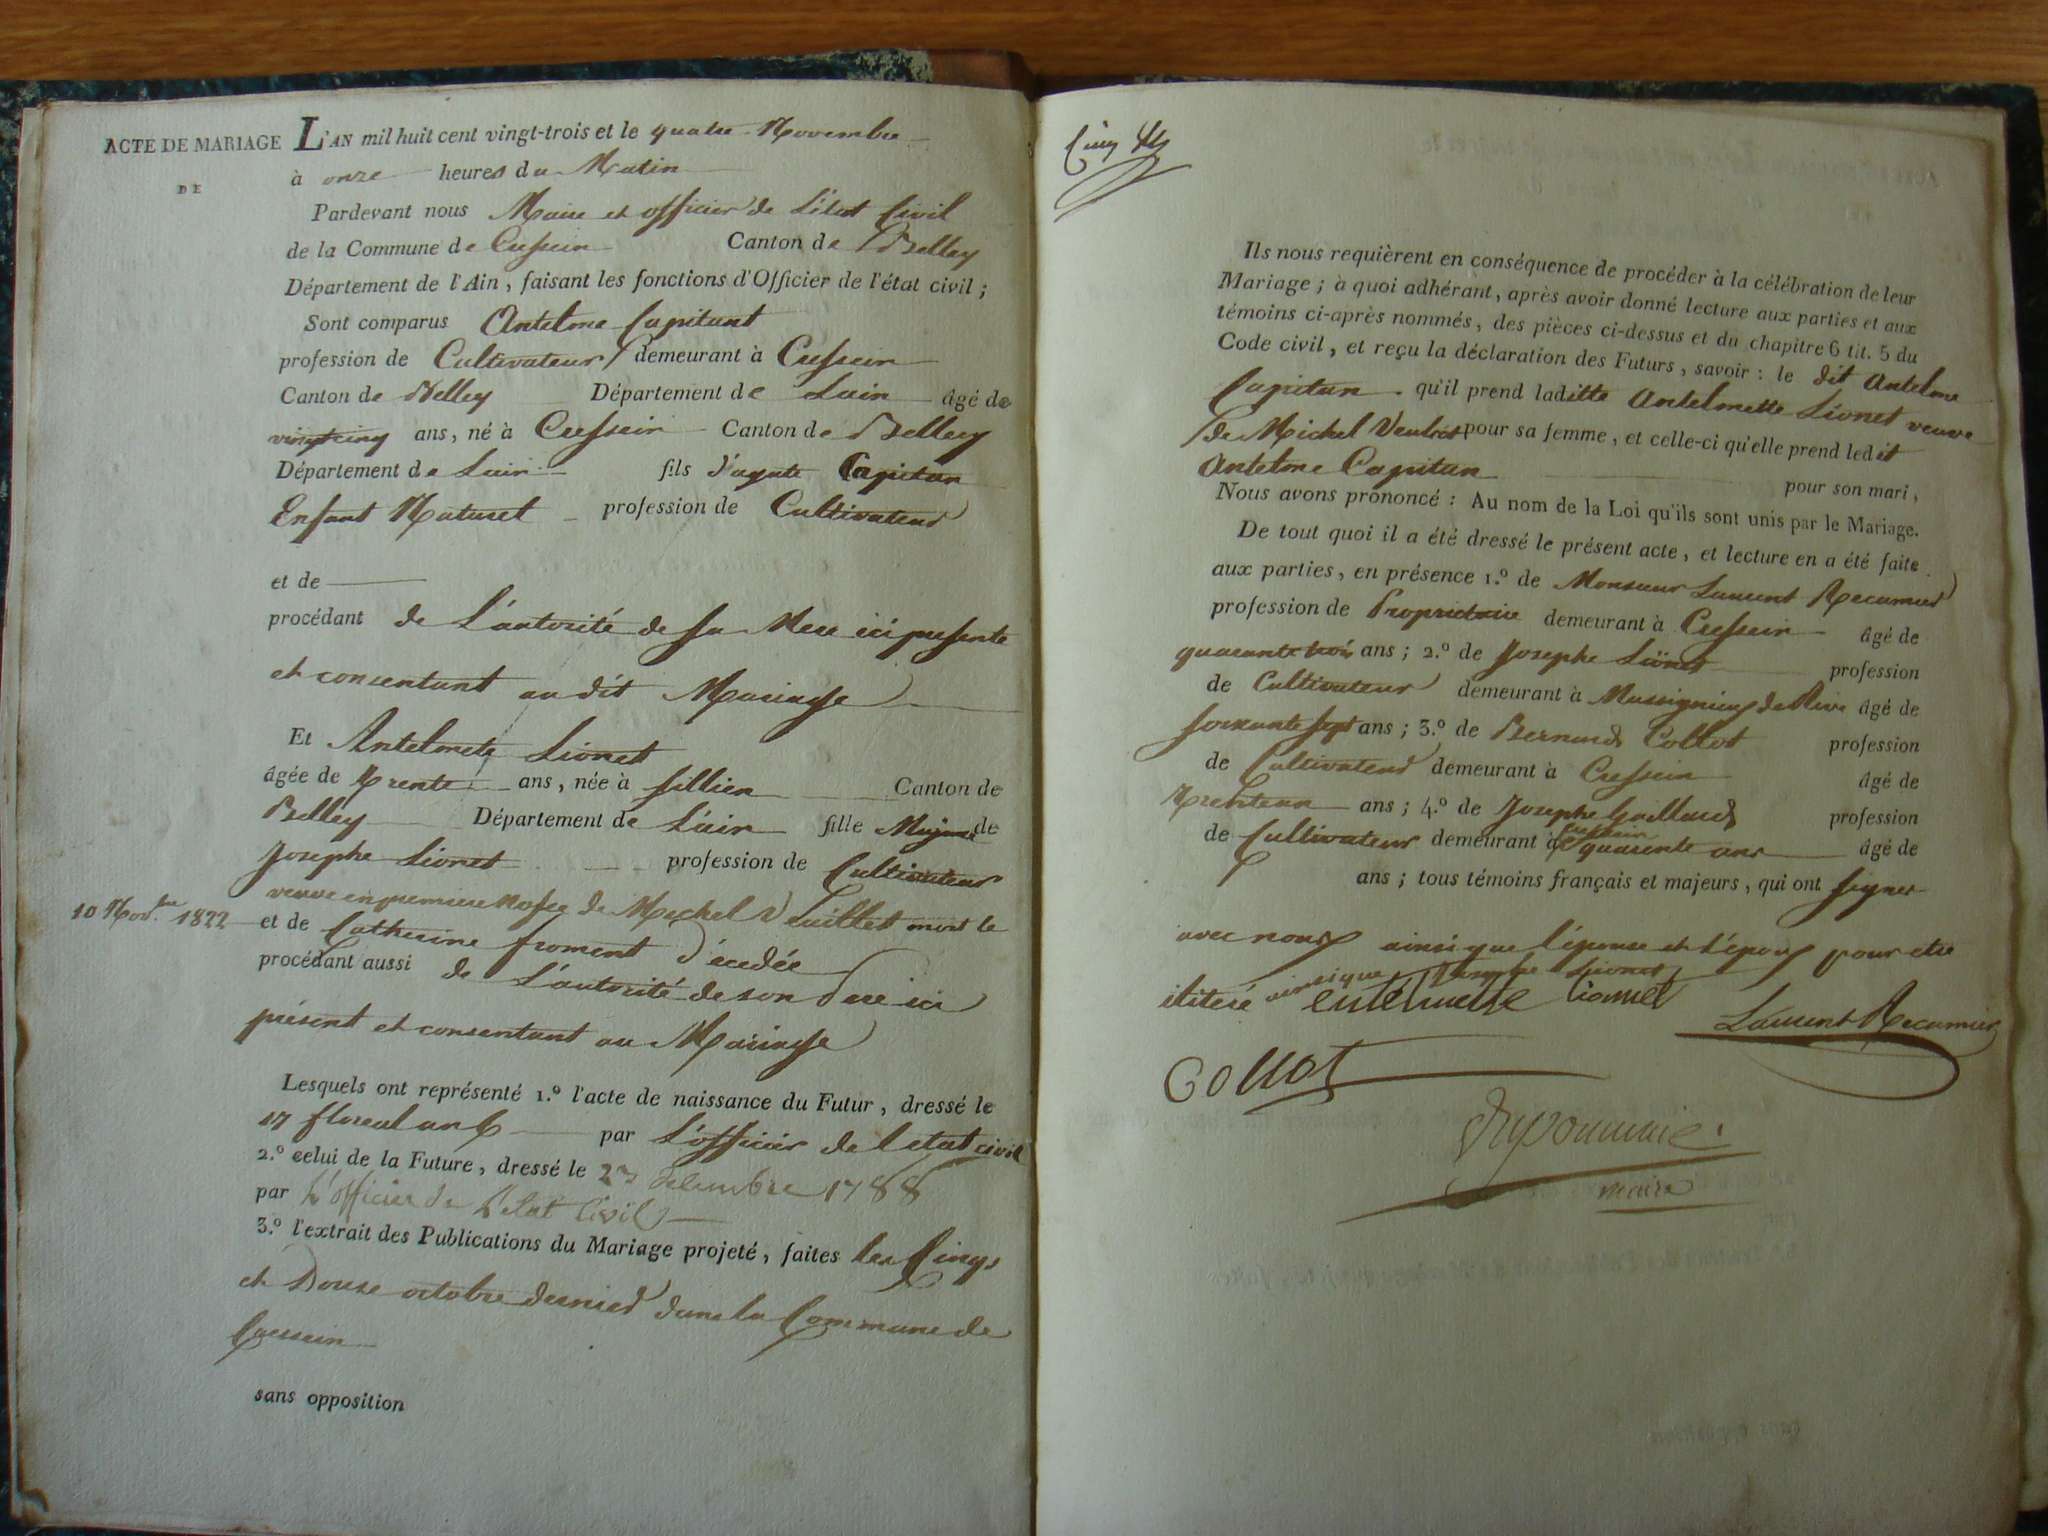 ACTE DE MARIAGE
DE
L'AN mil huit cent vingt-trois et le quatre Novembre
à onze heures du Matin
Pardevant nous Maire et officier de L'état Civil
de la Commune de Cressein Canton de Belley
Département de l'Ain, faisant les fonctions d'Officier de l'état civil ;
Sont comparus Antelme Capitant
profession de Cultivateur demeurant à Cressein
Canton de Belley Département de Lain âgé de
vingtcinq ans, né à Cressein Canton de Belley
Département de Lain fils d'agate Capitan
Enfant Naturel profession de Cultivateur
et de
procédant de L'autorité de sa Mere ici presente
et consentant au dit Mariage
Et Antelmete Lionet
âgée de trente ans, née à fillien Canton de
Belley Département de L'ain fille Majeure de
Josephe Lionet profession de Cultivateur
veuve en premiere Nosse de Mechel Vuillet mort le
10 Novbre 1822
et de Catherine froment décedée
procédant aussi de L'autorité de son Pere ici
présent et consentant au Mariage
Lesquels ont représenté 1.º l'acte de naissance du Futur, dressé le
17 floreal an 6 par L'officier de l'etat civil
2.º celui de la Future, dressé le 27 1788
par L'officier de L'etat Civil
3.º l'extrait des Publications du Mariage projeté, faites les Cinqs
et Douse octobre dernier dans la Commune de
Cressein
sans opposition
Cinq
Ils nous requièrent en conséquence de procéder à la célébration de leur
Mariage ; à quoi adhérant, après avoir donné lecture aux parties et aux
témoins ci-après nommés, des pièces ci-dessus et du chapitre 6 tit. 5 du
Code civil, et reçu la déclaration des Futurs, savoir : le dit Antelme
Capitan qu'il prend laditte Antelmette Lionet veuve
de Michel pour sa femme, et celle-ci qu'elle prend ledit
Antelme Capitan pour son mari,
Nous avons prononcé : Au nom de la Loi qu'ils sont unis par le Mariage.
De tout quoi il a été dressé le présent acte, et lecture en a été faite
aux parties, en présence 1.º de Monsieur Laurent Recamier
profession de Proprietaire demeurant à Cressein âgé de
quarante trois ans ; 2.º de Josephe Lionet profession
de Cultivateur demeurant à Massignieu de Rive âgé de
soixante sept ans ; 3.º de Bernard Collot profession
de Cultivateur demeurant à Cressein âgé de
trenteun ans ; 4.º de Josephe Gaillard profession
de Cultivateur demeurant à Cressein quarente ans âgé de
ans ; tous témoins français et majeurs, qui ont signer
avec nous ainsi que l'épouse et l'époux pour etre
iliteré ainsi que Josephe Lionet
entelmette lionet
Laurent Recamier
Collot
maire